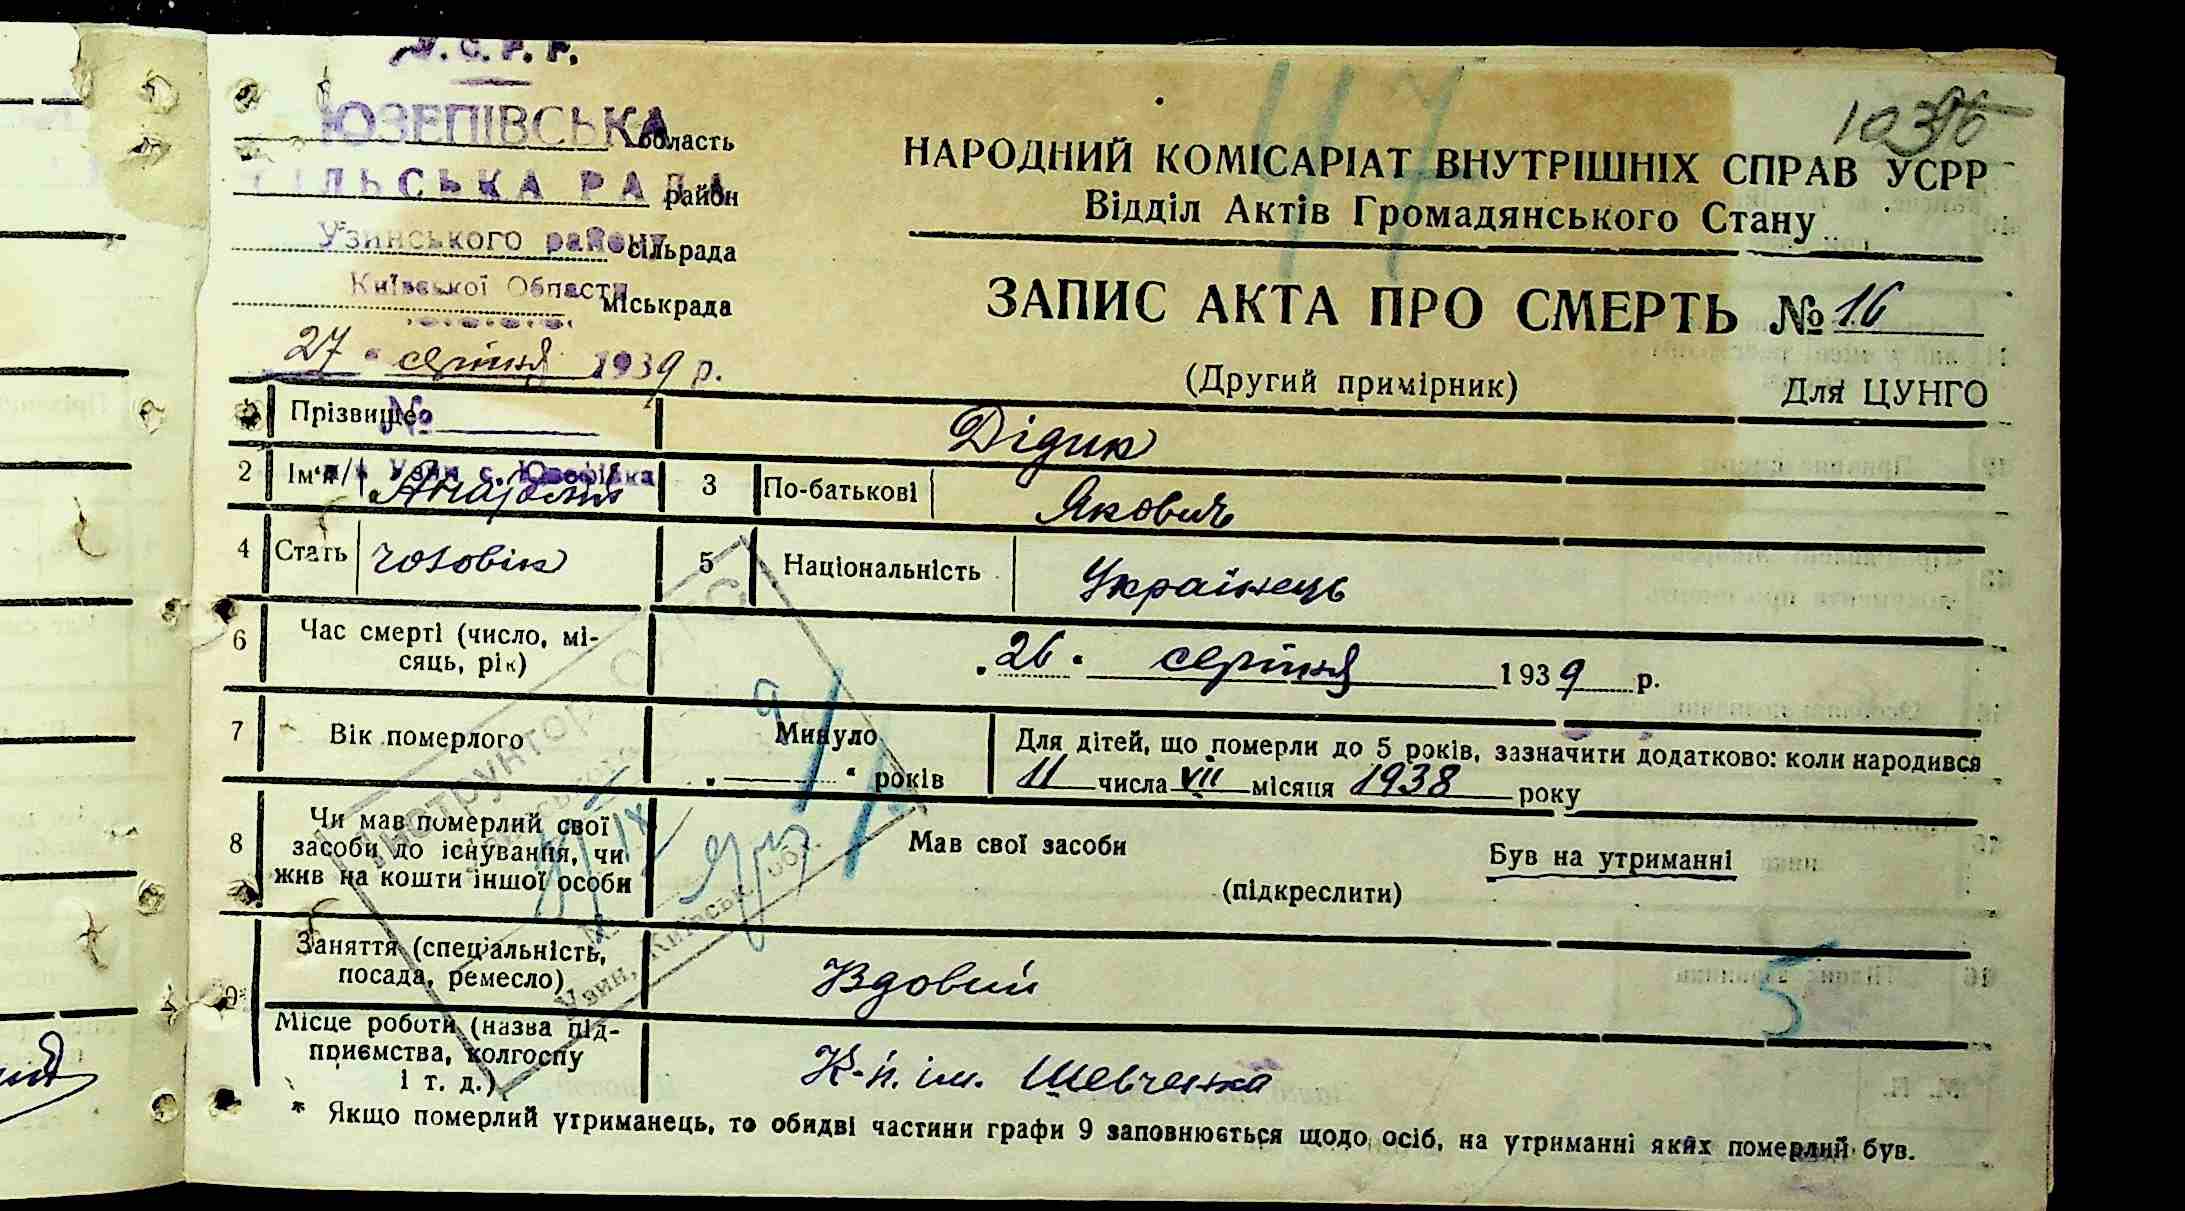 У.С.Р.Р.
ЮЗЕПІВСЬКА область
СІЛЬСЬКА РАДА район
Узинського району сільрада
Київської Области міськрада
27 серпня 1939 р.
№
Узин с. Юзефівка
1036
47
НАРОДНИЙ КОМІСАРІАТ ВНУТРІШНІХ СПРАВ УСРР
Відділ Актів Громадянського Стану
ЗАПИС АКТА ПРО СМЕРТЬ № 16
(Другий примірник) Для ЦУНГО
Прізвище Дідик
2 Ім'я Анатолій 3 По-батькові Якович
4 Стать чоловік 5 Національність Українець
6 Час смерті (число, мі-
сяць, рік) 26 серпня 1939 р.
7 Вік померлого Минуло
років
Для дітей, що померли до 5 років, зазначити додатково: коли народився
11 числа VII місяця 1938 року
8 Чи мав померлий свої
засоби до існування, чи
жив на кошти іншої особи
Мав свої засоби Був на утриманні
(підкреслити)
9 Заняття (спеціальність,
посада, ремесло) Вдовий
5
Місце роботи (назва під-
приємства, колгоспу
і т. д.) К-п. ім. Шевченка
* Якщо померлий утриманець, то обидві частини графи 9 заповнюється щодо осіб, на утриманні яких померлий був.
Інструктор
Узин, Київськ. обл.